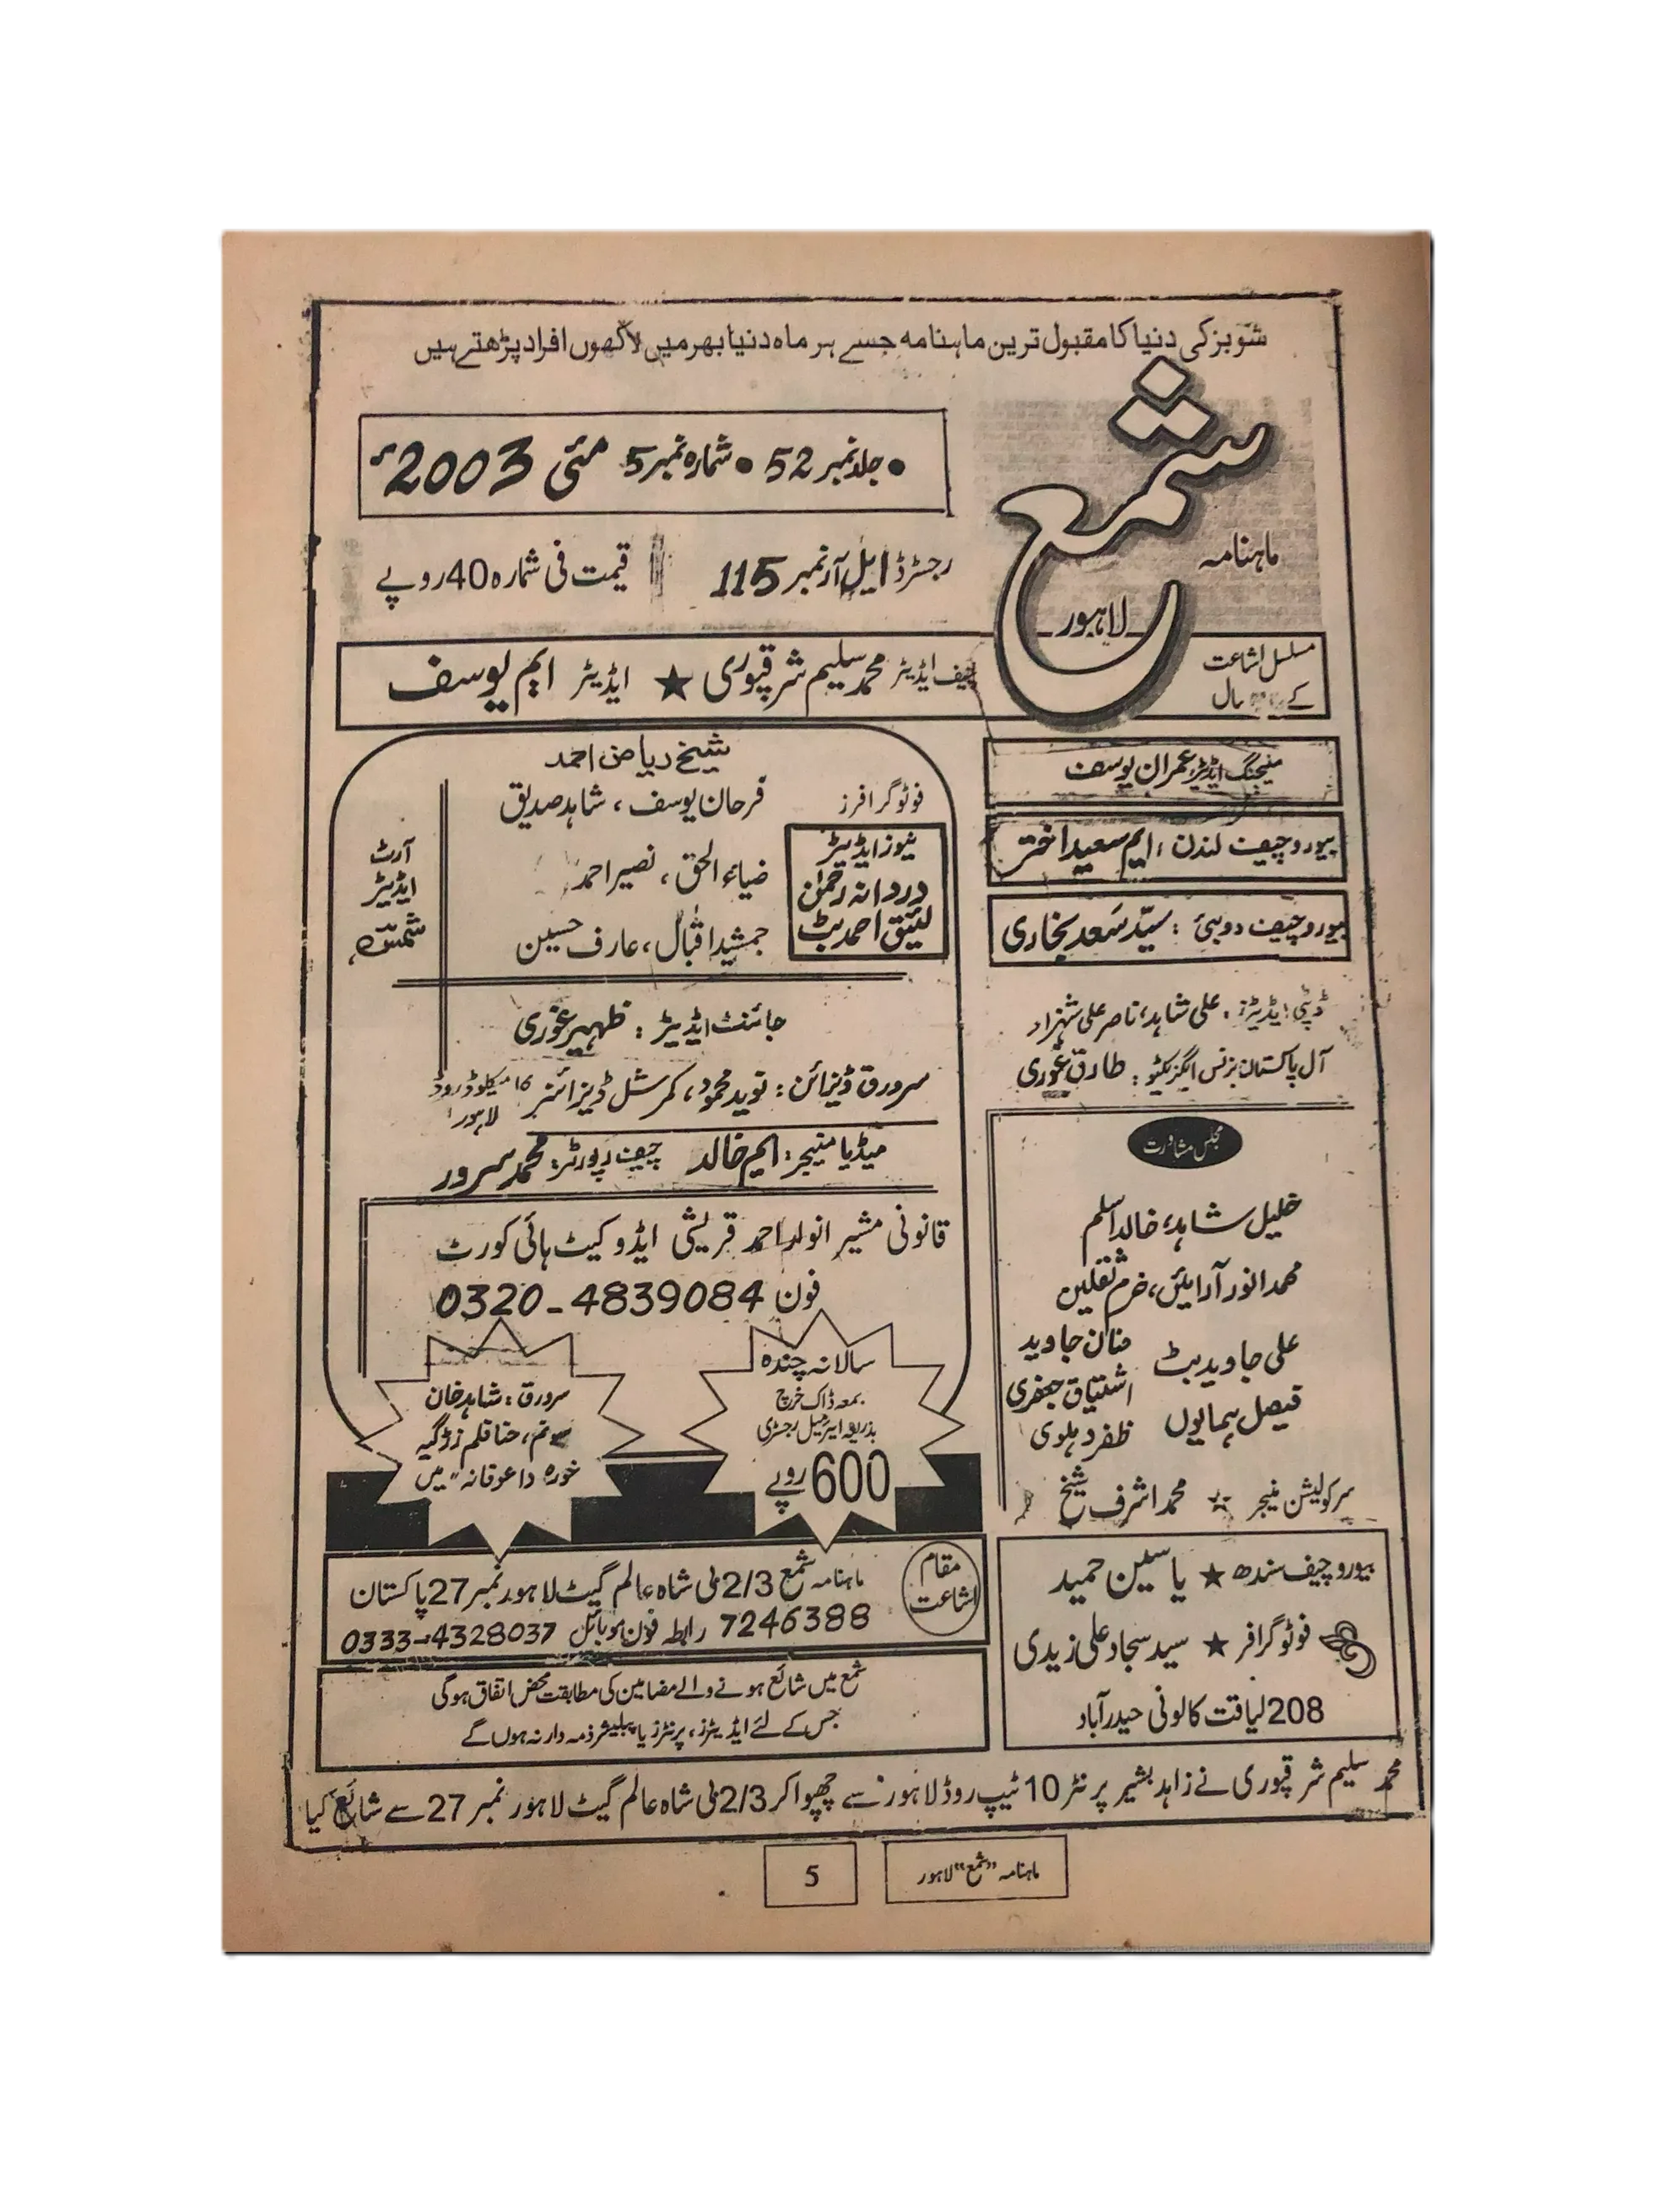 شوبز کی دنیا کا مقبول ترین ماہنامہ جسے ہر ماہ دنیا بھر میں لاکھوں افراد پڑھتے ہیں
شمع
ماہنامہ
لاہور
• جلد نمبر 52 • شمارہ نمبر 5 مئی 2003ء
رجسٹرڈ ایل آر نمبر 115
قیمت فی شمارہ 40 روپے
مسلسل اشاعت
کے سال
چیف ایڈیٹر محمد سلیم شرقپوری ★ ایڈیٹر ایم یوسف
منیجنگ ایڈیٹر عمران یوسف
بیورو چیف لندن : ایم سعید اختر
بیورو چیف دوبئی : سیّد سَعد بخاری
ڈپٹی ایڈیٹرز : علی شاہد، ناصر علی شہزاد
آل پاکستان بزنس ایگزیکٹو : طارق غوری
مجلس مشاورت
خلیل شاہد، خالد اسلم
محمد انور آرائیں، خرم ثقلین
علی جاوید بٹ
منان جاوید
اشتیاق جعفری
فیصل ہمایوں
ظفر دہلوی
سرکولیشن منیجر ☆ محمد اشرف شیخ
بیورو چیف سندھ ★ یاسین حمید
فوٹوگرافر ★ سید سجاد علی زیدی
208 لیاقت کالونی حیدرآباد
شیخ ریاض احمد
فوٹوگرافرز
فرحان یوسف ، شاہد صدیق
ضیاء الحق ، نصیر احمد
جمشید اقبال، عارف حسین
نیوز ایڈیٹر
دردانہ رحمٰن
لئیق احمد بٹ
آرٹ
ایڈیٹر
شمسؔ
جائنٹ ایڈیٹر : ظہیر غوری
سرورق ڈیزائن : نوید محمود، کمرشل ڈیزائنر 16 میکلوڈ روڈ لاہور
میڈیا منیجر : ایم خالد چیف رپورٹر : محمد سرور
قانونی مشیر انوار احمد قریشی ایڈوکیٹ ہائی کورٹ
فون 0320-4839084
سالانہ چندہ
بمعہ ڈاک خرچ
بذریعہ ایئرمیل رجسٹری
600 روپے
سرورق : شاہد خان
حنا قلم
میں
مقام
اشاعت
ماہنامہ شمع 2/3 بی شاہ عالم گیٹ لاہور نمبر 27 پاکستان
7246388 رابطہ فون موبائل 0333-4328037
شمع میں شائع ہونے والے مضامین کی مطابقت محض اتفاق ہوگی
جس کے لئے ایڈیٹرز، پرنٹرز یا پبلیشر ذمہ دار نہ ہوں گے
محمد سلیم شرقپوری نے زاہد بشیر پرنٹر 10 ٹیپ روڈ لاہور سے چھپوا کر 2/3 بی شاہ عالم گیٹ لاہور نمبر 27 سے شائع کیا
ماہنامہ "شمع" لاہور
5